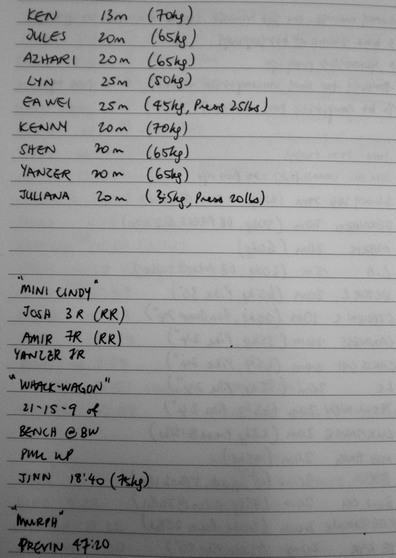 KEN 13m (70kg)
JULES 20m (65kg)
AZHARI 20m (65kg)
LYN 25m (50kg)
EA WEI 25m (45kg, Press 25lbs)
KENNY 20m (70kg)
SHEN 20m (65kg)
YANZER 20m (65kg)
JULIANA 20m (35kg, Press 20lbs)
"MINI CINDY"
JOSH 3R (RR)
AMIR 7R (RR)
YANZER 7R
"WHACK-WAGON"
21-15-9 of
BENCH @ BW
PULL UP
JINN 18:40 (75kg)
"MURPH"
PREVIN 47:20